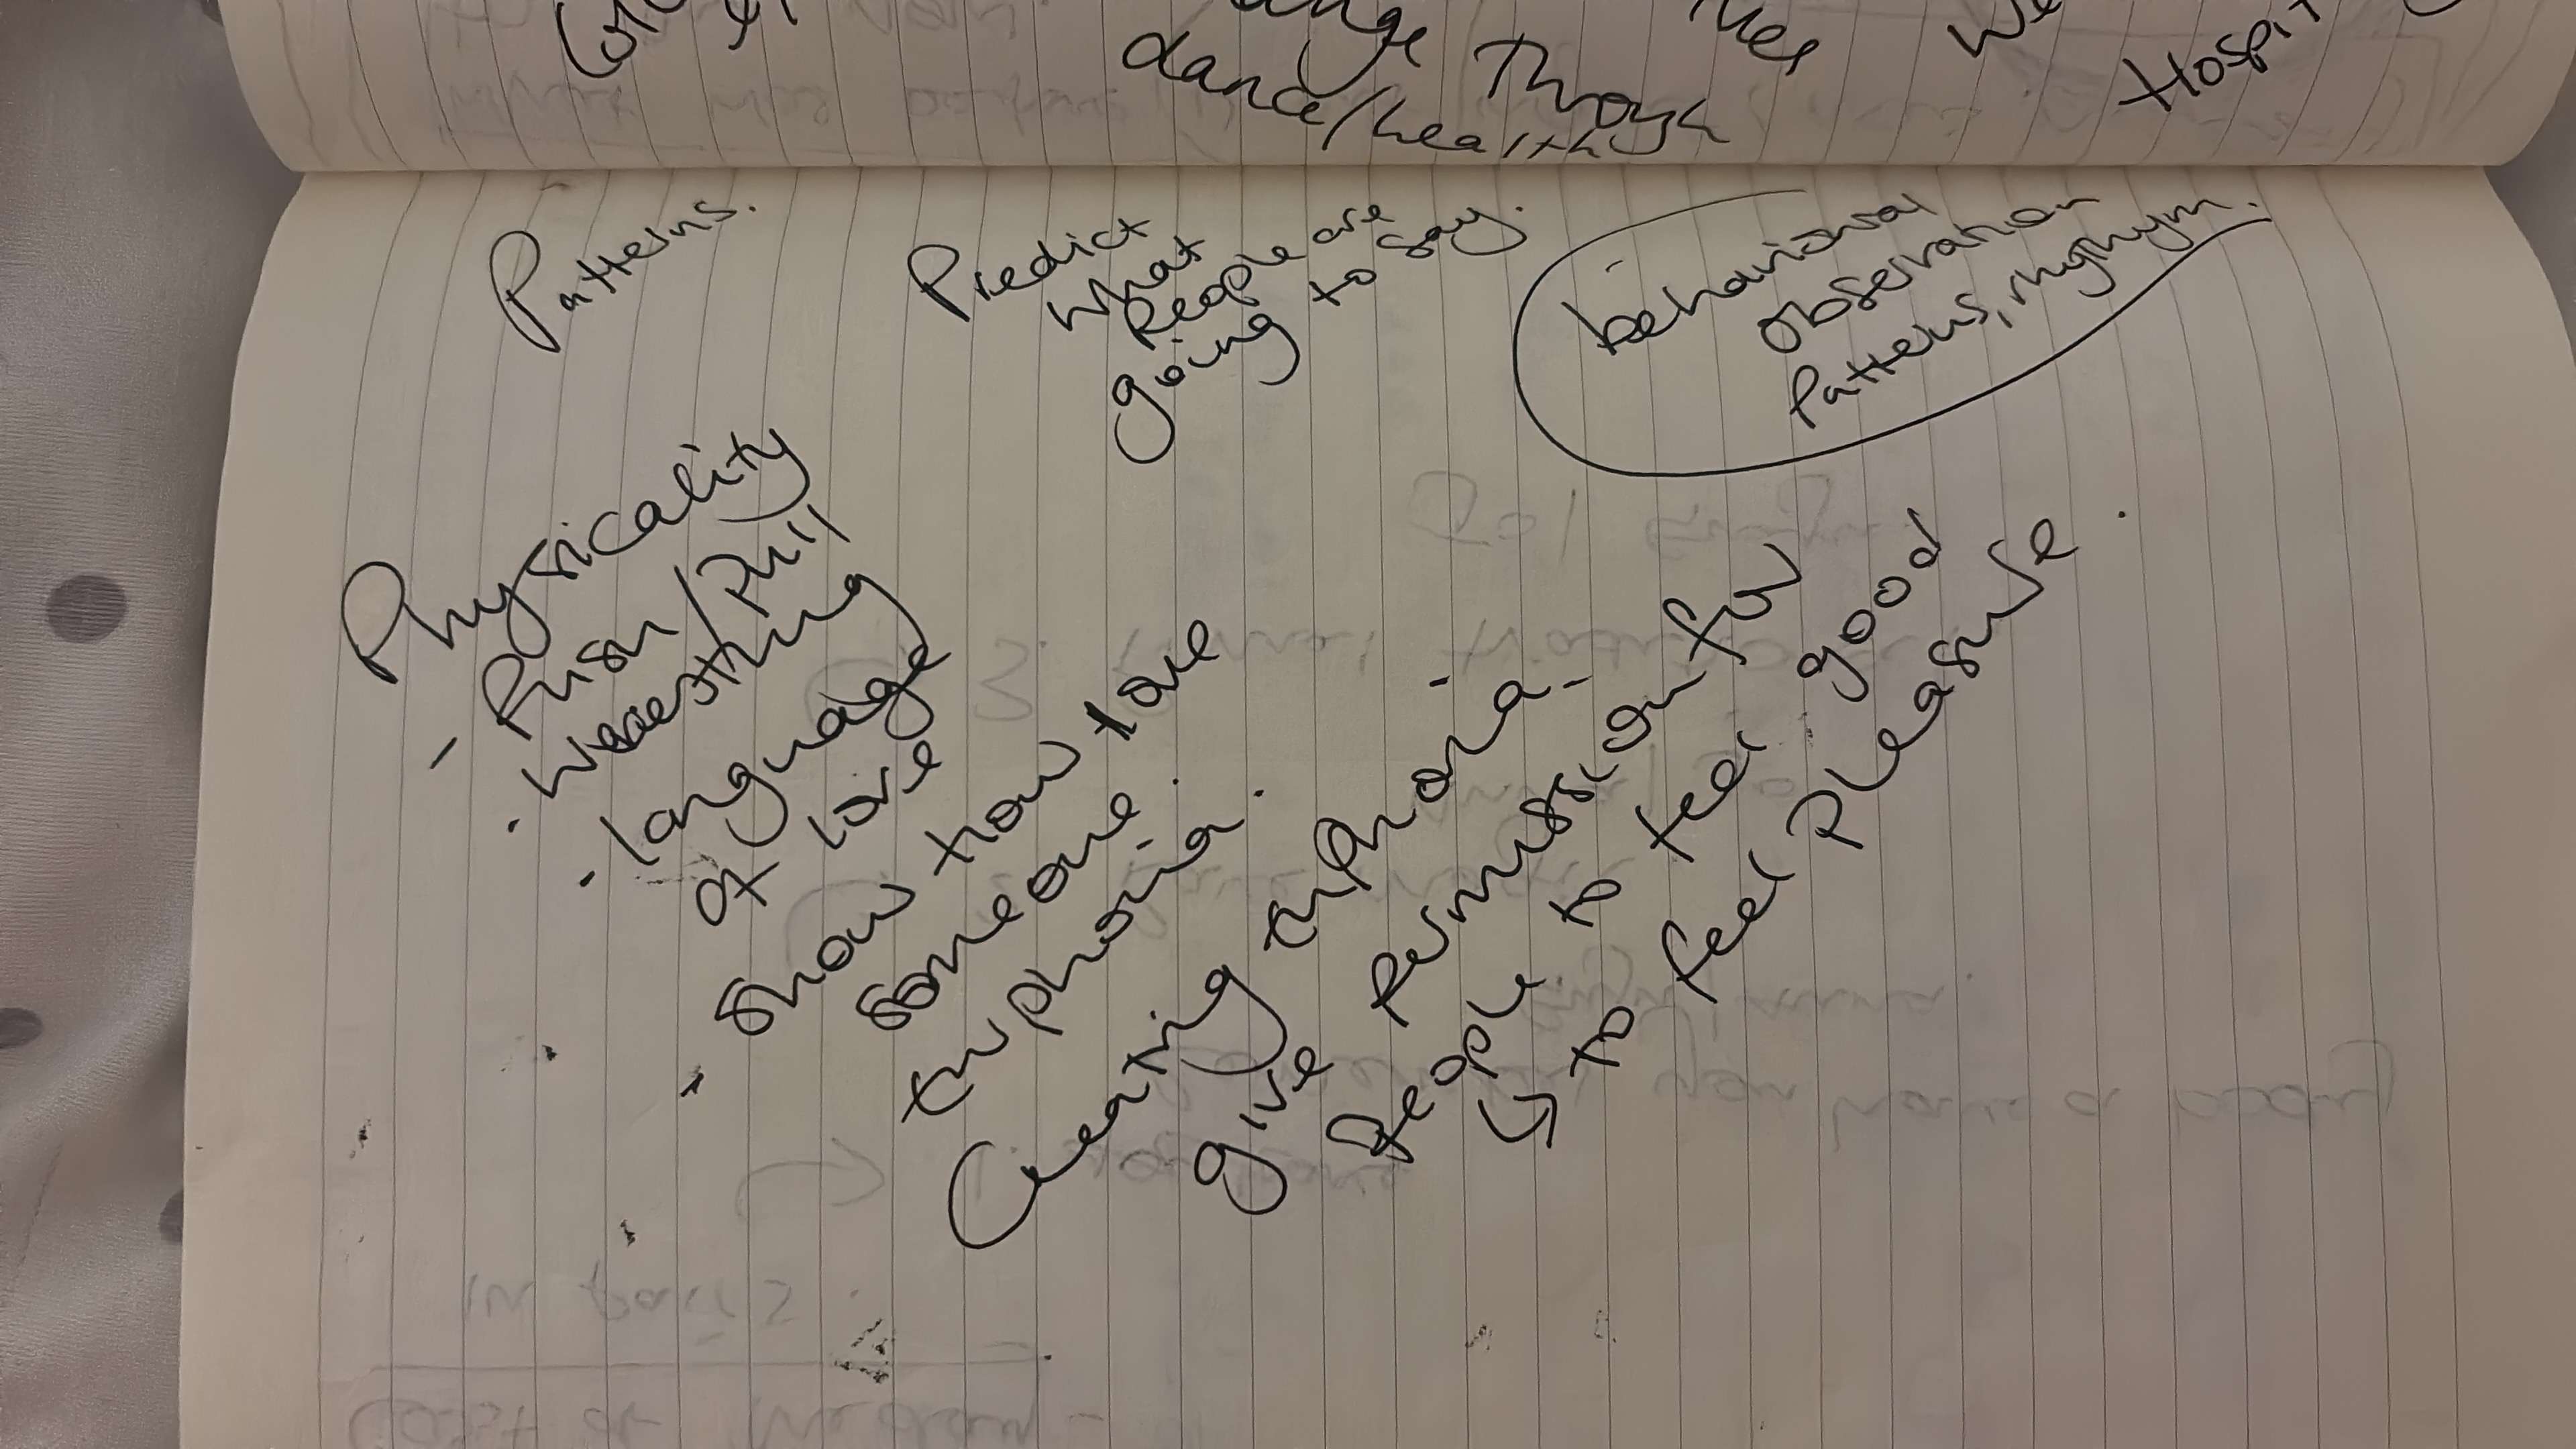 ange Through
dance/health
Patterns.
Predict
what
People are
going to say.
behavioral
observation
Patterns, rhythym.
Physicality
- Push/Pull
. Wrestling
. language
of love
- show how love
someone.
Euphoria.
Creating euphoria.
give Permission for
People to feel good
↳ to feel Pleasure.